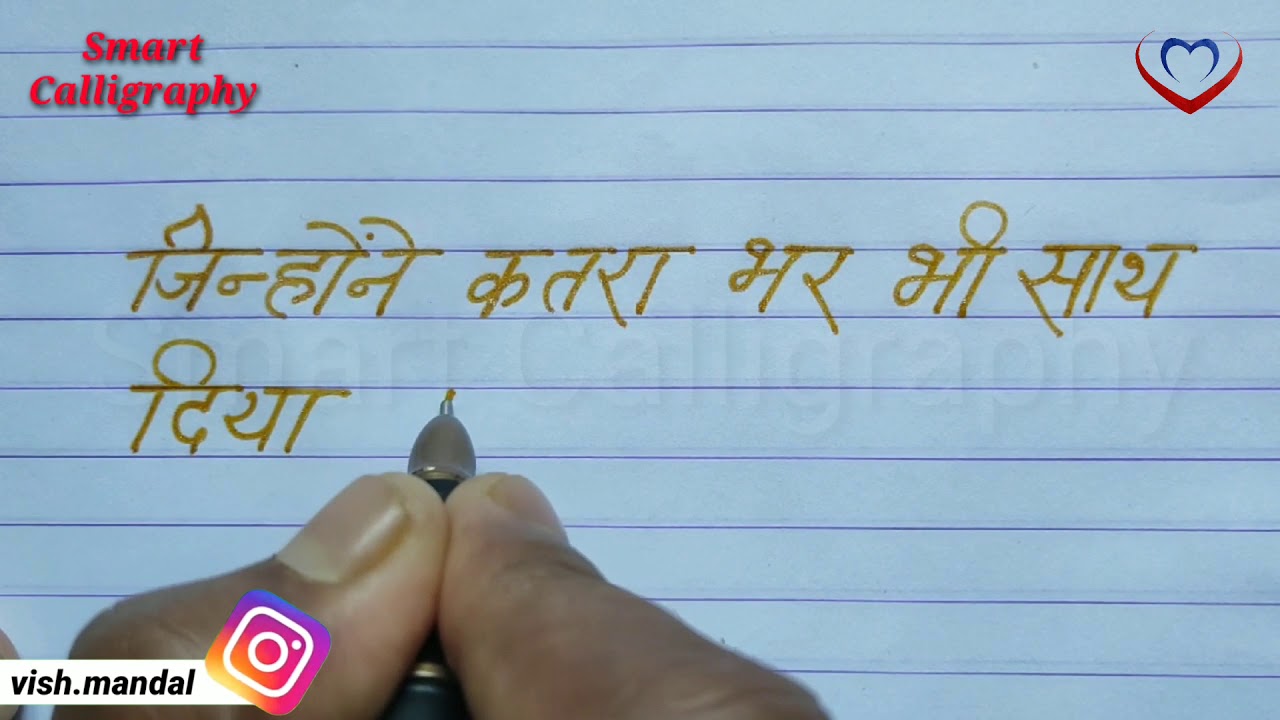 Smart
Calligraphy
जिन्होंने कतरा भर भी साथ
दिया
Smart Calligraphy
vish.mandal